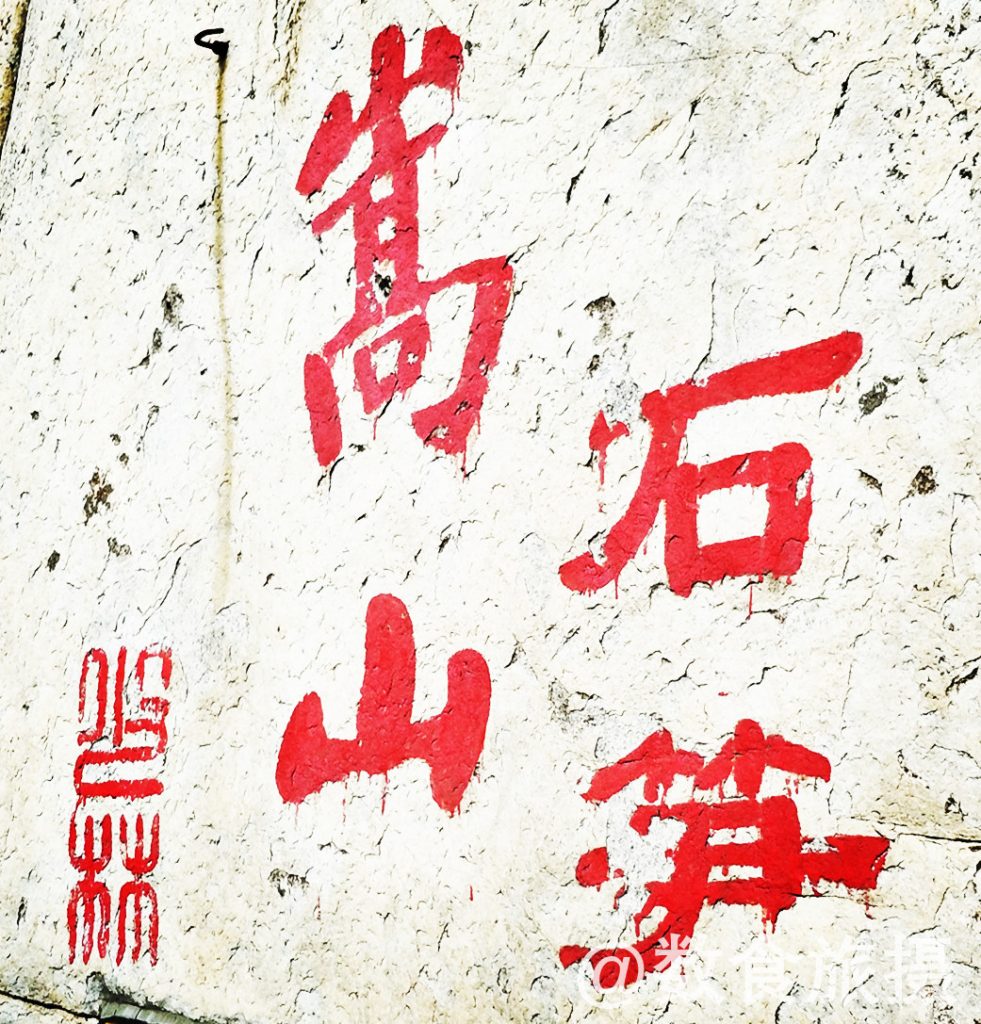 石笋
嵩山
少林
@数食旅摄